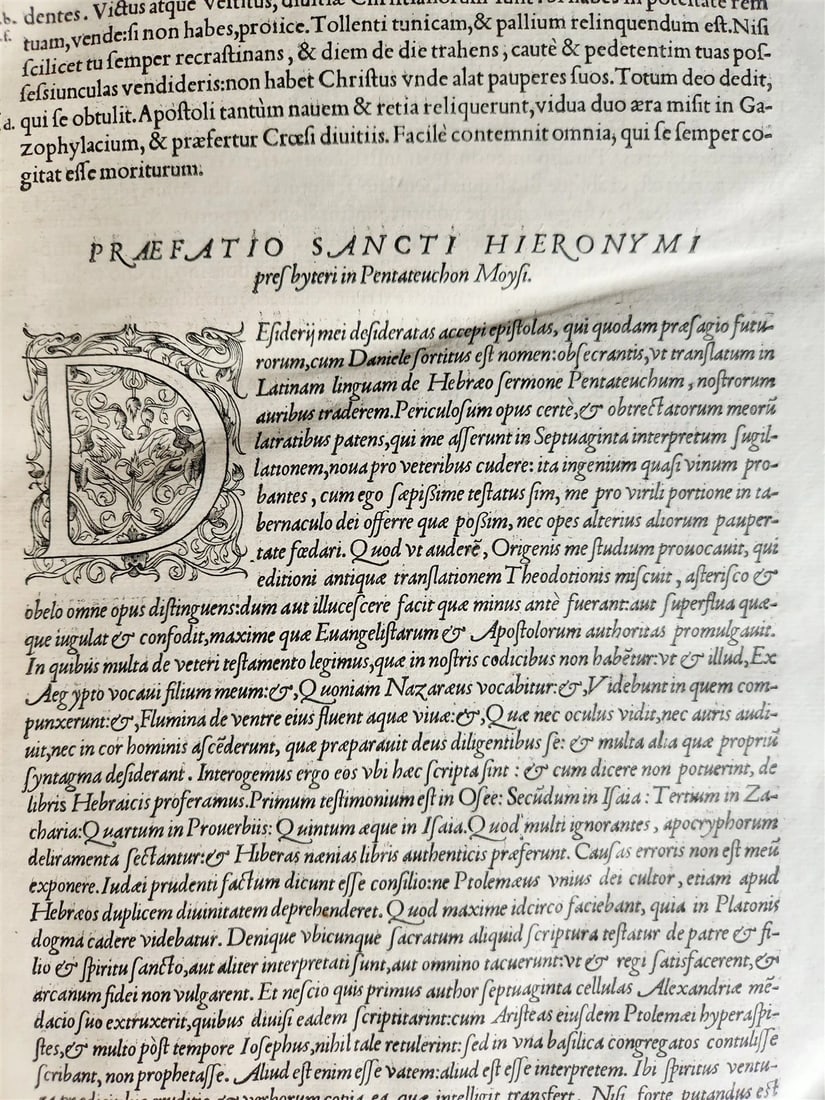 b. dentes. Victus atque vestitus, diuitiæ Christianorum sunt. Si habes in potestate rem
f. tuam, vende: si non habes, proiice. Tollenti tunicam, & pallium relinquendum est. Nisi
scilicet tu semper recrastinans, & diem de die trahens, cautè & pedetentim tuas pos-
sessiunculas vendideris: non habet Christus vnde alat pauperes suos. Totum deo dedit,
d. qui se obtulit. Apostoli tantùm nauem & retia reliquerunt, vidua duo æra misit in Ga-
zophylacium, & præfertur Crœsi diuitiis. Facilè contemnit omnia, qui se semper co-
gitat esse moriturum.
PRÆFATIO SANCTI HIERONYMI
presbyteri in Pentateuchon Moysi.
DEsiderij mei desideratas accepi epistolas, qui quodam præsagio futu-
rorum, cum Daniele sortitus est nomen: obsecrantis, vt translatum in
Latinam linguam de Hebræo sermone Pentateuchum, nostrorum
auribus traderem. Periculosum opus certè, & obtrectatorum meorũ
latratibus patens, qui me asserunt in Septuaginta interpretum sugil-
lationem, noua pro veteribus cudere: ita ingenium quasi vinum pro-
bantes, cum ego sæpißime testatus sim, me pro virili portione in ta-
bernaculo dei offerre quæ poßim, nec opes alterius aliorum pauper-
tate fœdari. Quod vt auderẽ, Origenis me studium prouocauit, qui
editioni antiquæ translationem Theodotionis miscuit, asterisco &
obelo omne opus distinguens: dum aut illucescere facit quæ minus antè fuerant: aut superflua quæ-
que iugulat & confodit, maxime quæ Euangelistarum & Apostolorum authoritas promulgauit.
In quibus multa de veteri testamento legimus, quæ in nostris codicibus non habẽtur: vt & illud, Ex
Aegypto vocaui filium meum: &, Quoniam Nazaræus vocabitur: &, Videbunt in quem com-
punxerunt: &, Flumina de ventre eius fluent aquæ viuæ: &, Quæ nec oculus vidit, nec auris audi-
uit, nec in cor hominis ascẽderunt, quæ præparauit deus diligentibus se: & multa alia quæ propriũ
syntagma desiderant. Interogemus ergo eos vbi hæc scripta sint: & cum dicere non potuerint, de
libris Hebraicis proferamus. Primum testimonium est in Osee: Secũdum in Isaia: Tertium in Za-
charia: Quartum in Prouerbiis: Quintum æque in Isaia. Quod multi ignorantes, apocryphorum
deliramenta sectantur: & Hiberas nænias libris authenticis præferunt. Causas erroris non est meũ
exponere. Iudæi prudenti factum dicunt esse consilio: ne Ptolemæus vnius dei cultor, etiam apud
Hebræos duplicem diuinitatem deprehenderet. Quod maxime idcirco faciebant, quia in Platonis
dogma cadere videbatur. Denique vbicunque sacratum aliquid scriptura testatur de patre & fi-
lio & spiritu sancto, aut aliter interpretati sunt, aut omnino tacuerunt: vt & regi satisfacerent, &
arcanum fidei non vulgarent. Et nescio quis primus author septuaginta cellulas Alexandriæ mẽ-
dacio suo extruxerit, quibus diuisi eadem scriptitarint: cum Aristeas eiusdem Ptolemæi hyperaspi-
stes, & multo pòst tempore Iosephus, nihil tale retulerint: sed in vna basilica congregatos contulisse
scribant, non prophetasse. Aliud est enim esse vatem: aliud est esse interpretem. Ibi spiritus ventu-
verborum copia ea quæ intelligit transfert. Nisi forte putandus est